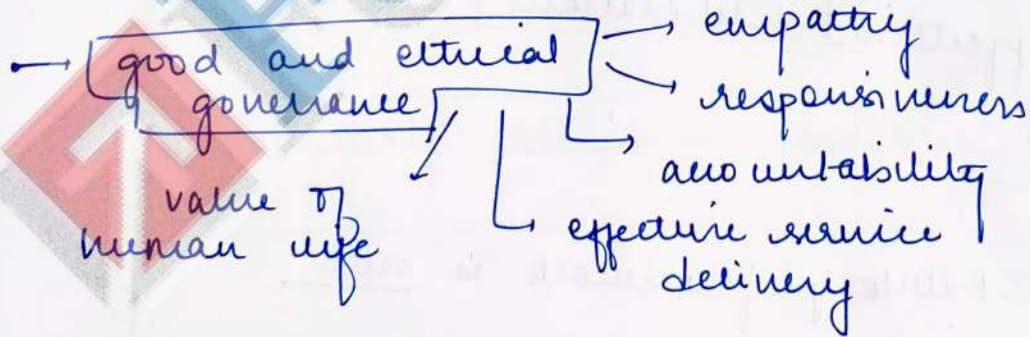 good and ethical
governance
empathy
responsiveness
accountability
effective service
delivery
value of
human life